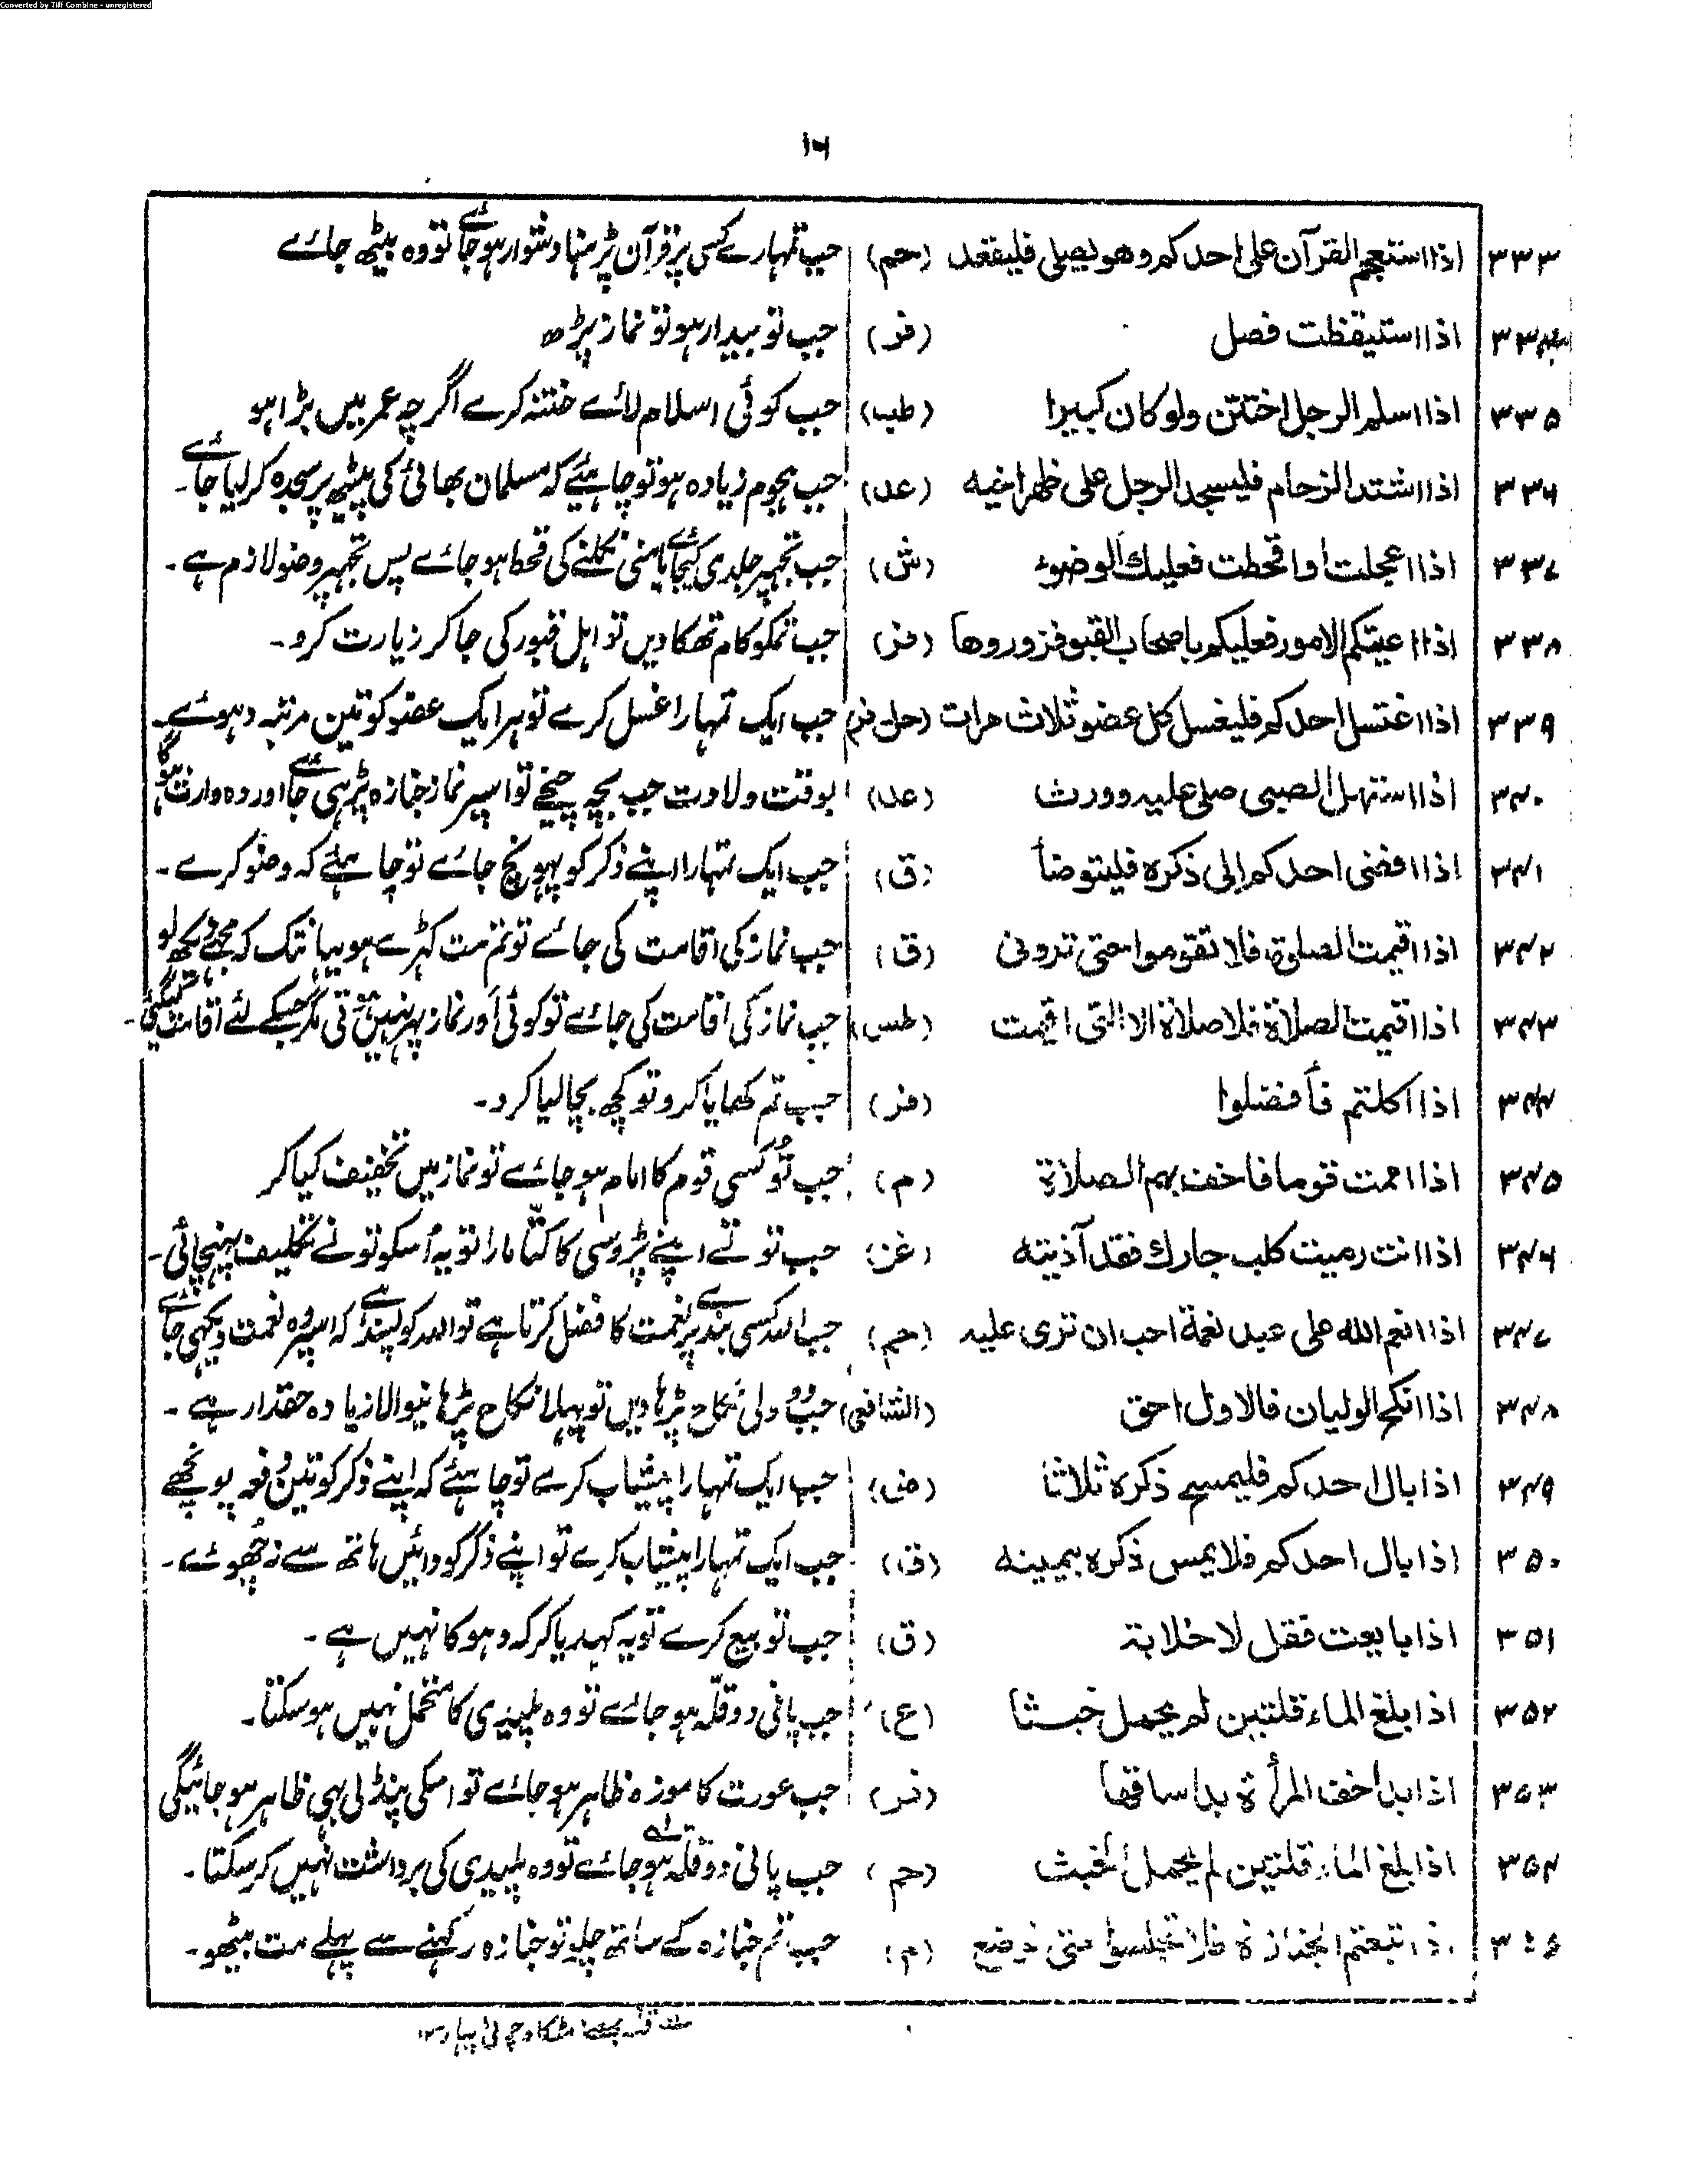 Converted by Tiff Combine - unregistered
۱۶
۳۳۳ اذا استعجم القرآن علی احدکم وهو یصلی فلیقعد (حم) جب تمہارے کسی پر قرآن پڑہنا دشوار ہو جائے تو وہ بیٹھ جائے
۳۳۴ اذا استیقظت فصل (فر) جب تو بیدار ہو تو نماز پڑھ
۳۳۵ اذا اسلم الرجل اختتن ولو کان کبیرا (طب) جب کوئی اسلام لائے ختنہ کرے اگرچہ عمر میں بڑا ہو
۳۳۶ اذا اشتد الزحام فلیسجد الرجل علی ظهر اخیه (عد) جب ہجوم زیادہ ہو تو چاہیئے کہ مسلمان بھائی کی پیٹھ پر سجدہ کر لیا جائے۔
۳۳۷ اذا اعجلت او اقحطت فعلیك الوضوء (ش) جب تجھپر جلدی کیجائے یا منی نکلنے کی قحط ہو جائے پس تجھپر وضو لازم ہے۔
۳۳۸ اذا اعیتکم الامور فعلیکم باصحاب القبور فزوروها (فر) جب تمکو کام تھکا دیں تو اہل قبور کی جاکر زیارت کرو۔
۳۳۹ اذا اغتسل احدکم فلیغسل کل عضو ثلاث مرات (حل فر) جب ایک تمہارا غسل کرے تو ہر ایک عضو کو تین مرتبہ دہوئے۔
۳۴۰ اذا استهل الصبی صلی علیه وورث (عد) بوقت ولادت جب بچہ چیخے تو اسپر نماز جنازہ پڑہی جائے اور وہ وارث ہو گا
۳۴۱ اذا افضی احدکم الی ذکره فلیتوضأ (ق) جب ایک تمہارا اپنے ذکر کو پہونچ جائے تو چاہیئے کہ وضو کرے۔
۳۴۲ اذا اقیمت الصلوة فلا تقوموا حتی ترونی (ق) جب نماز کی اقامت کی جائے تو تم مت کہڑے ہو یہانتک کہ مجھے دیکھ لو
۳۴۳ اذا اقیمت الصلاة فلا صلاة الا التی اقیمت (طس) جب نماز کی اقامت کی جائے تو کوئی اَور نماز پہر نہیں ہوتی مگر جسکے لئے اقامت کہی گئی۔
۳۴۴ اذا اکلتم فأفضلوا (فر) جب تم کھایا کرو تو کچھ بچا لیا کرو۔
۳۴۵ اذا اممت قوما فاخف بهم الصلاة (م) جب تُو کسی قوم کا امام ہو جائے تو نماز میں تخفیف کیا کر
۳۴۶ اذا انت رمیت کلب جارك فقد آذیته (غن) جب تو نے اپنے پڑوسی کا کتّا مارا تو یہ اُسکو تو نے تکلیف پہنچائی۔
۳۴۷ اذا انعم الله علی عبد نعمة احب ان تری علیه (حم) جب اللہ کسی بندے پر نعمت کا فضل کرتا ہے تو اللہ کو پسند ہے کہ اسپر وہ نعمت دیکھی جائے
۳۴۸ اذا انکح الولیان فالاول احق (الشافعی) جب دو ولی نکاح پڑہا دیں تو پہلا نکاح پڑہانیوالا زیادہ حقدار ہے۔
۳۴۹ اذا بال احدکم فلیمسح ذکره ثلاثا (ض) جب ایک تمہارا پیشاب کرے تو چاہئے کہ اپنے ذکر کو تین دفعہ پونچھے
۳۵۰ اذا بال احدکم فلا یمس ذکره بیمینه (ق) جب ایک تمہارا پیشاب کرے تو اپنے ذکر کو دائیں ہاتھ سے نہ چُھوئے۔
۳۵۱ اذا بایعت فقل لا خلابة (ق) جب تو بیع کرے تو یہ کہہ دیا کر کہ دہوکا نہیں ہے۔
۳۵۲ اذا بلغ الماء قلتین لم یحمل خبثا (ع) جب پانی دو قلّہ ہو جائے تو وہ پلیدی کا متحمل نہیں ہو سکتا۔
۳۵۳ اذا بدا خف المرأة بدا ساقها (فر) جب عورت کا موزہ ظاہر ہو جائے تو اسکی پنڈلی بہی ظاہر ہو جائیگی
۳۵۴ اذا بلغ الماء قلتین لم یحمل الخبث (حم) جب پانی دو قلّہ ہو جائے تو وہ پلیدی کی برداشت نہیں کر سکتا۔
۳۵۵ اذا تبعتم الجنازة فلا تجلسوا حتی توضع (م) جب تم جنازہ کے ساتھ چلو تو جنازہ رکہنے سے پہلے مت بیٹھو۔